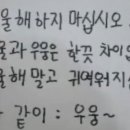 울해 하지 마십시오
울과 우웅은 한끗 차이입
울해 말고 귀여워지십
같이 : 우웅~